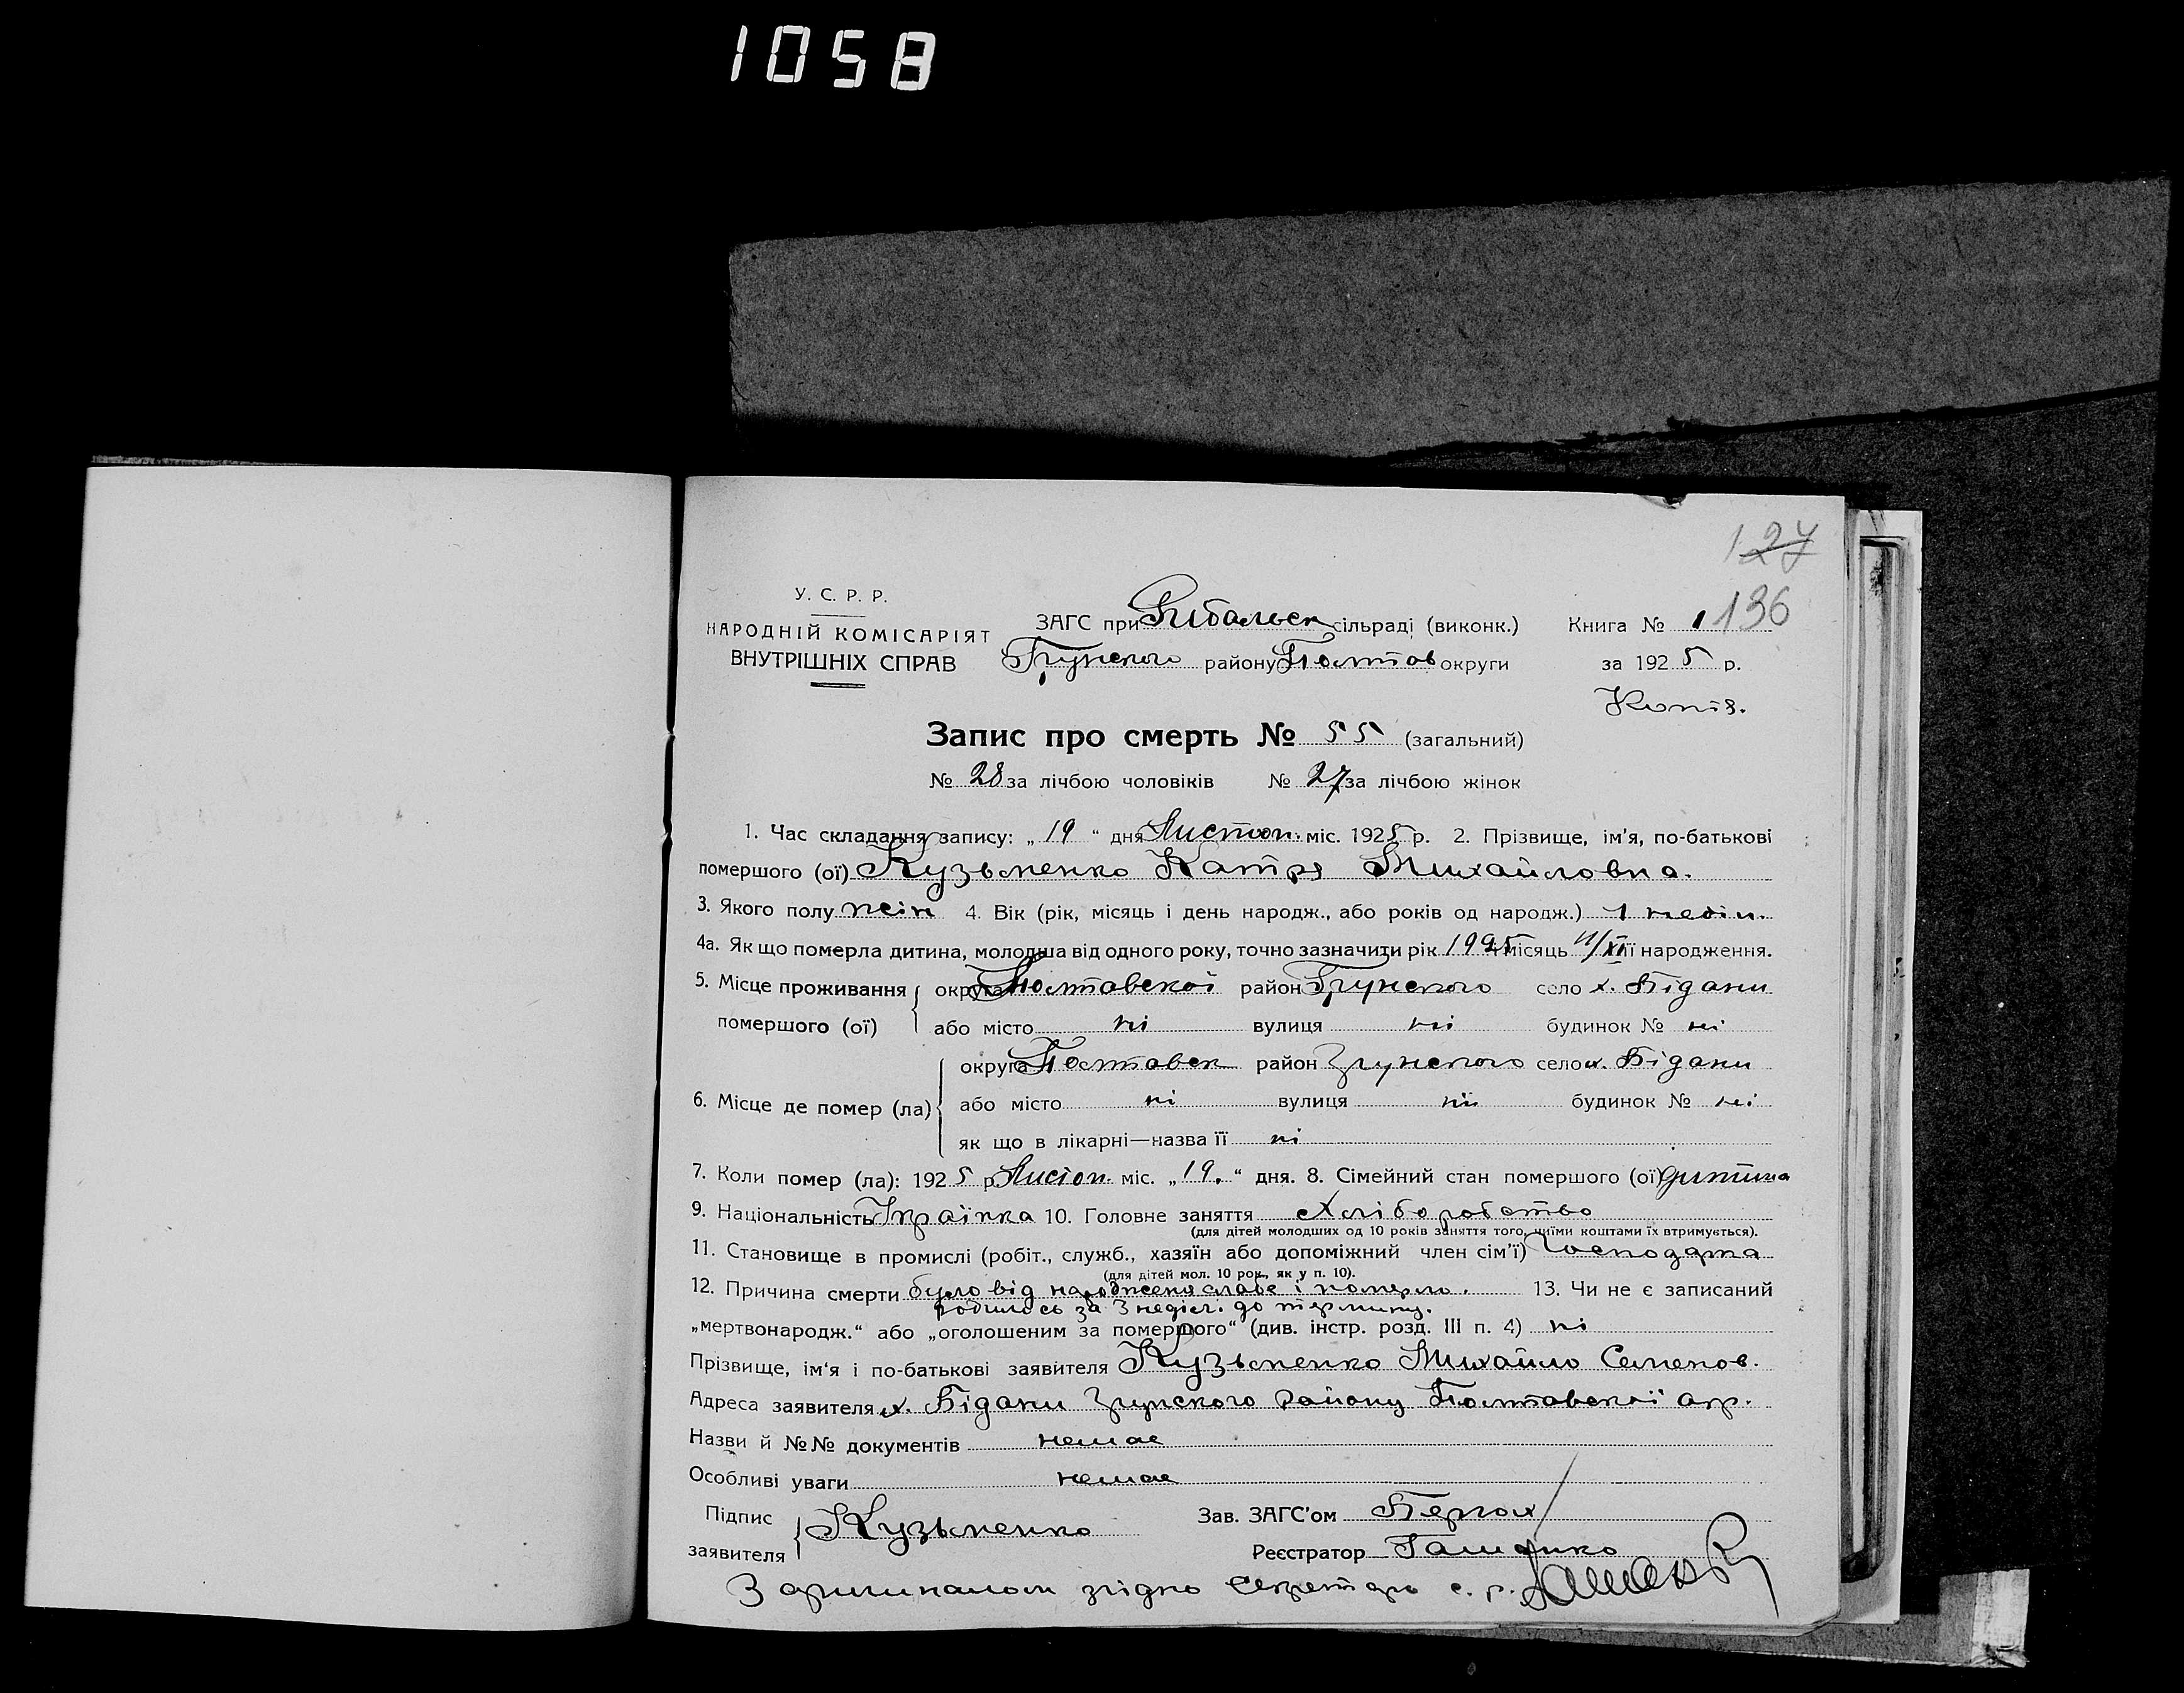 1058
127
136
У. С. Р. Р.
НАРОДНІЙ КОМІСАРІЯТ
ВНУТРІШНІХ СПРАВ
ЗАГС при Рибальск сільраді (виконк.) Книга № 1
Грунського району Полтав округи за 1925 р.
Копія.
Запис про смерть № 55 (загальний)
№ 28 за лічбою чоловіків № 27 за лічбою жінок
1. Час складання запису: „19“ дня Листоп. міс. 1925 р. 2. Прізвище, ім’я, по-батькові
помершого (ої) Кузьменко Катря Михайловна.
3. Якого полу жін 4. Вік (рік, місяць і день народж., або років од народж.) 1 неділ.
4а. Як що померла дитина, молодша від одного року, точно зазначити рік 1925 місяць 11/XI її народження.
5. Місце проживання округа Полтавської район Грунського село х. Бідани
помершого (ої) або місто ні вулиця ні будинок № ні
округа Полтавск район Згунського село х. Бідани
6. Місце де помер (ла) або місто ні вулиця ні будинок № ні
як що в лікарні—назва її ні
7. Коли помер (ла): 1925 р. Листоп. міс. „19.“ дня. 8. Сімейний стан помершого (ої) дитина
9. Національність Українка 10. Головне заняття Хліборобство
(для дітей молодших од 10 років заняття того, чиїми коштами їх втримується).
11. Становище в промислі (робіт., служб., хазяїн або допоміжний член сім’ї)
(для дітей мол. 10 рок., як у п. 10).
12. Причина смерти було від народження слабе і померло. 13. Чи не є записаний
родилось за 3 неділ. до терміну.
„мертвонародж.“ або „оголошеним за помершого“ (див. інстр. розд. III п. 4) ні
Прізвище, ім‘я і по-батькові заявителя Кузьменко Михайло Семенов.
Адреса заявителя х. Бідани Згунського Району Полтавської окр.
Назви й №№ документів немає
Особливі уваги немає
Підпис Зав. ЗАГС’ом
заявителя Кузьменко Реєстратор
З оригиналом згідно Секретарь с. р.